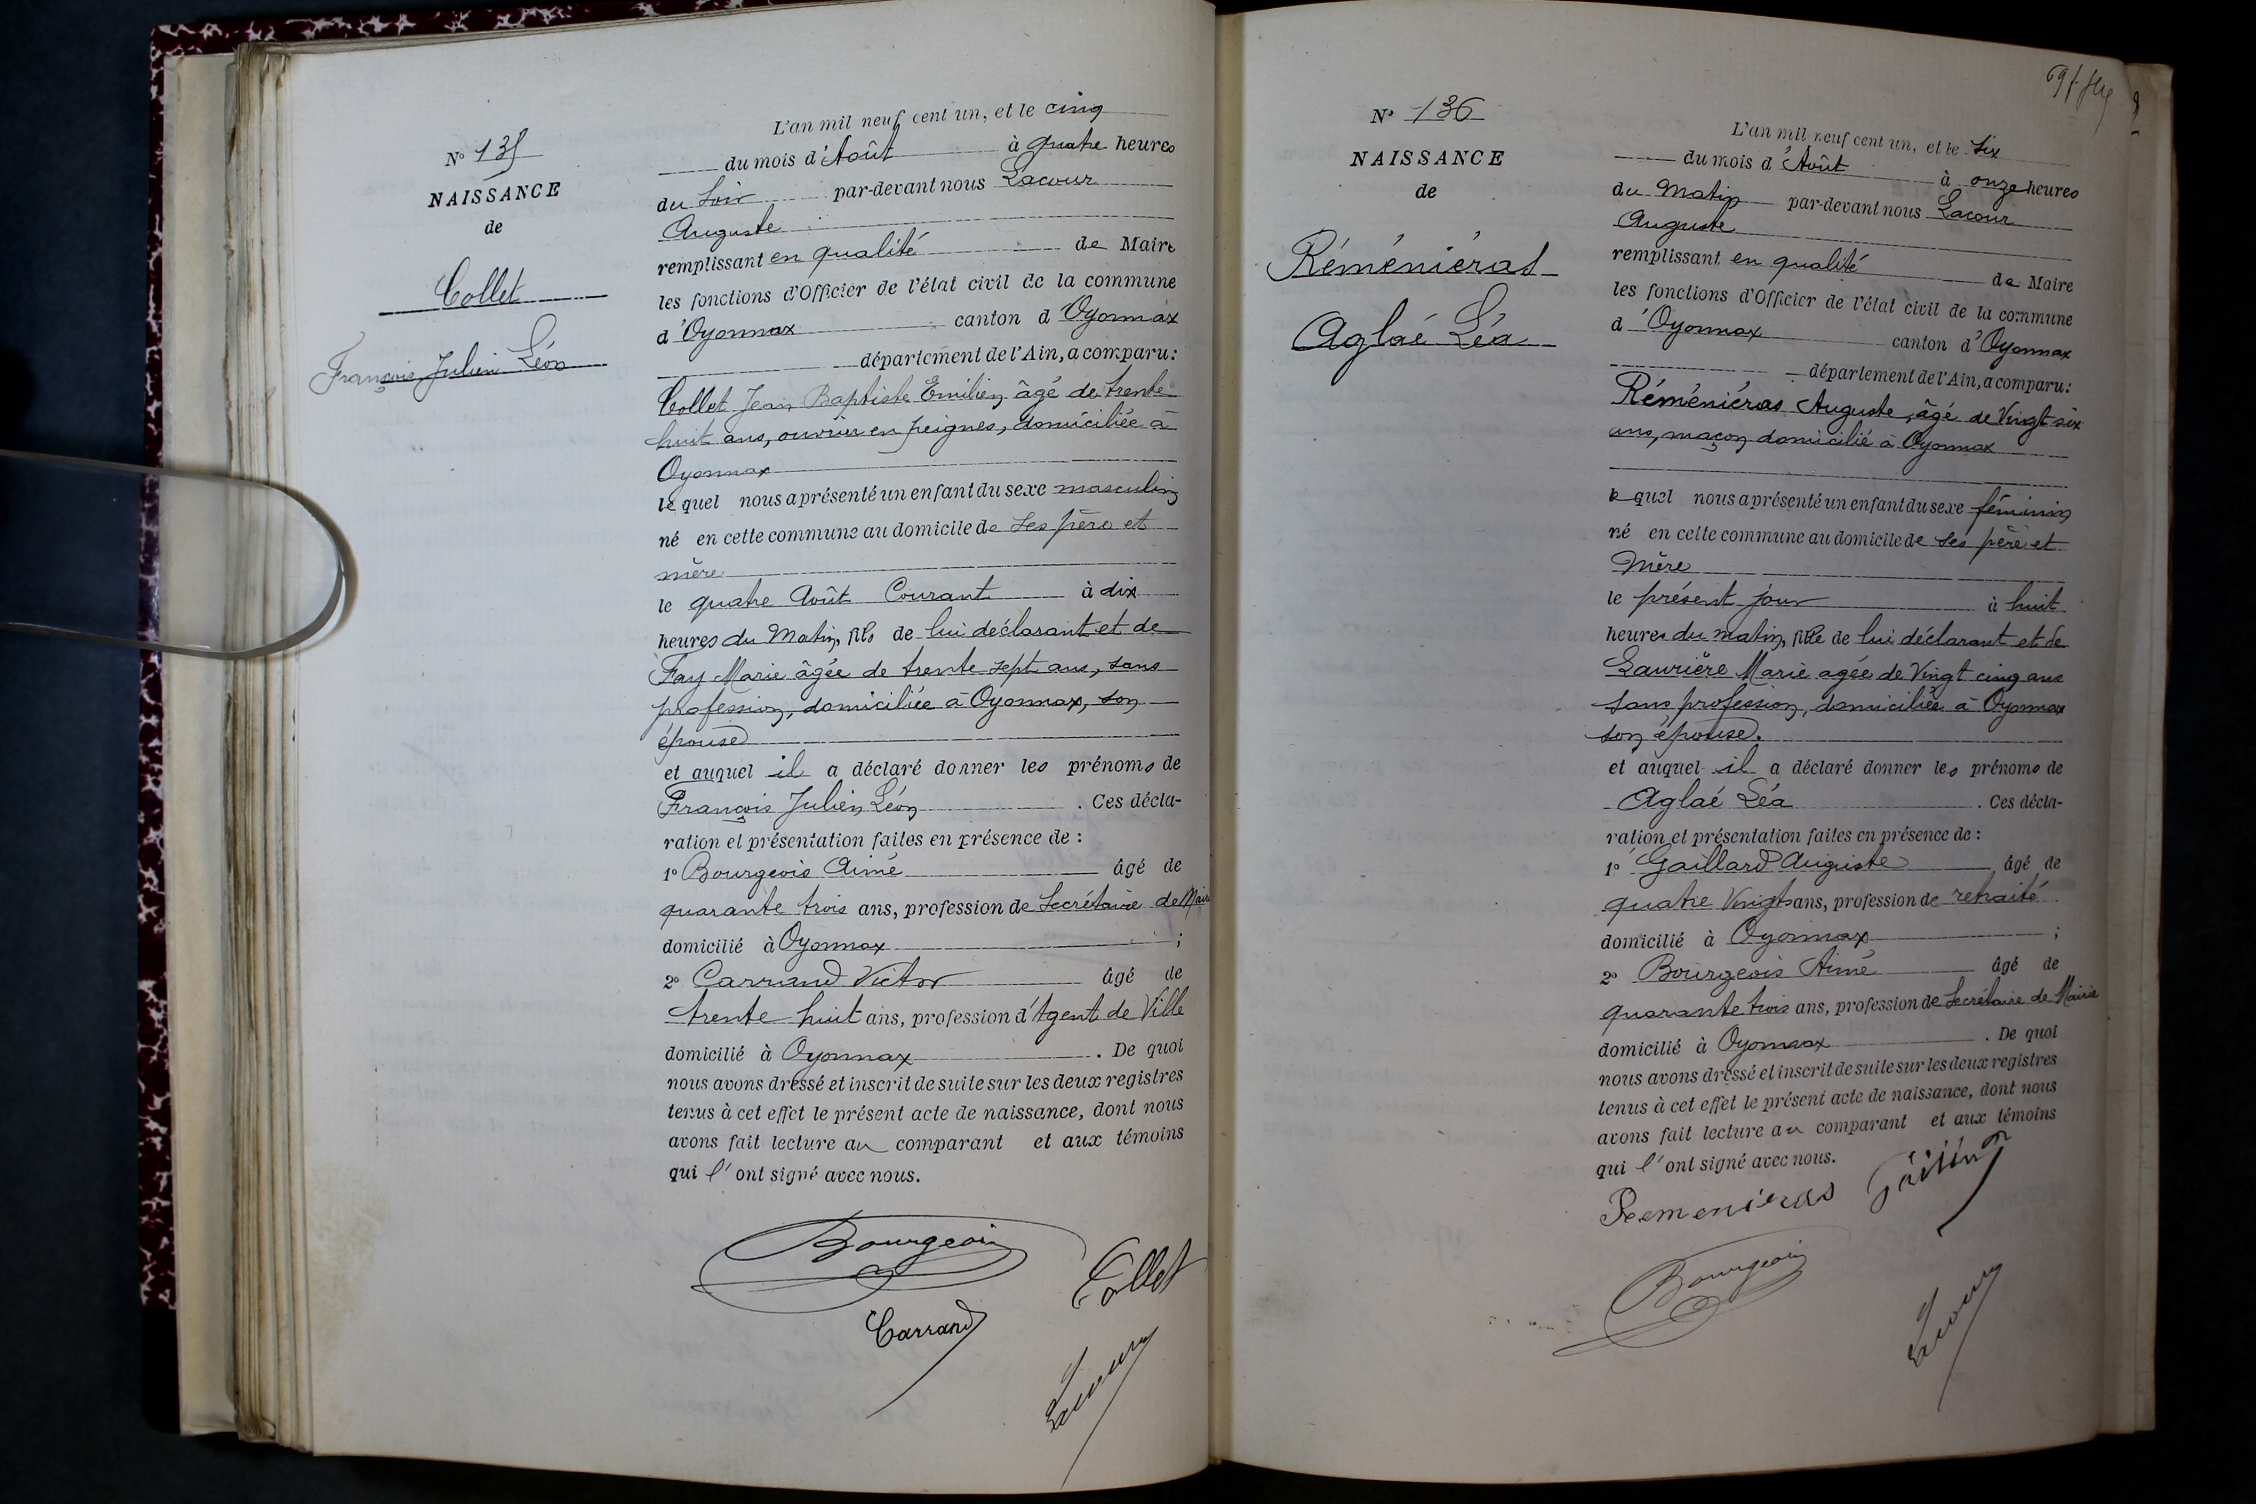 N° 135
NAISSANCE
de
Collet
François Julien Léon
L'an mil neuf cent un, et le cinq
du mois d'Août à quatre heures
du Soir par-devant nous Lacour
Auguste
remplissant en qualité de Maire
les fonctions d'Officier de l'état civil de la commune
d'Oyonnax canton d Oyonnax
département de l'Ain, a comparu:
Collet Jean Baptiste Emilien âgé de trente
huit ans, ouvrier en peignes, domiciliée à
Oyonnax
lequel nous a présenté un enfant du sexe masculin
né en cette commune au domicile de ses père et
mère
le quatre Août Courant à dix
heures du Matin, fils de lui déclarant et de
Fay Marie âgée de trente sept ans, sans
profession, domiciliée à Oyonnax, son
épouse
et auquel il a déclaré donner les prénoms de
François Julien Léon . Ces décla-
ration et présentation faites en présence de :
1° Bourgeois Aimé âgé de
quarante trois ans, profession de Secrétaire de Mairie
domicilié à Oyonnax ;
2° Carrand Victor âgé de
trente huit ans, profession d'Agent de Ville
domicilié à Oyonnax . De quoi
nous avons dressé et inscrit de suite sur les deux registres
tenus à cet effet le présent acte de naissance, dont nous
avons fait lecture au comparant et aux témoins
qui l'ont signé avec nous.
Bourgeois
Collet
Carrand
Lacour
N° 136
NAISSANCE
de
Réméniéras
Aglaé Léa
L'an mil neuf cent un, et le Six
du mois d'Août à onze heures
du Matin par-devant nous Lacour
Auguste
remplissant en qualité de Maire
les fonctions d'Officier de l'état civil de la commune
d'Oyonnax canton d'Oyonnax
département de l'Ain, a comparu:
Réméniéras Auguste, âgé de Vingt six
ans, maçon domicilié à Oyonnax
lequel nous a présenté un enfant du sexe féminin
né en cette commune au domicile de ses père et
Mère
le présent jour à huit
heures du matin, fille de lui déclarant et de
Laurière Marie agée de Vingt cinq ans
sans profession, domiciliée à Oyonnax
son épouse.
et auquel il a déclaré donner les prénoms de
Aglaé Léa . Ces décla-
ration et présentation faites en présence de :
1° Gaillard Auguste âgé de
quatre Vingts ans, profession de retraité
domicilié à Oyonnax ;
2° Bourgeois Aimé âgé de
quarante trois ans, profession de Secrétaire de Mairie
domicilié à Oyonnax . De quoi
nous avons dressé et inscrit de suite sur les deux registres
tenus à cet effet le présent acte de naissance, dont nous
avons fait lecture au comparant et aux témoins
qui l'ont signé avec nous.
Remenieras
Bourgeois
Lacour